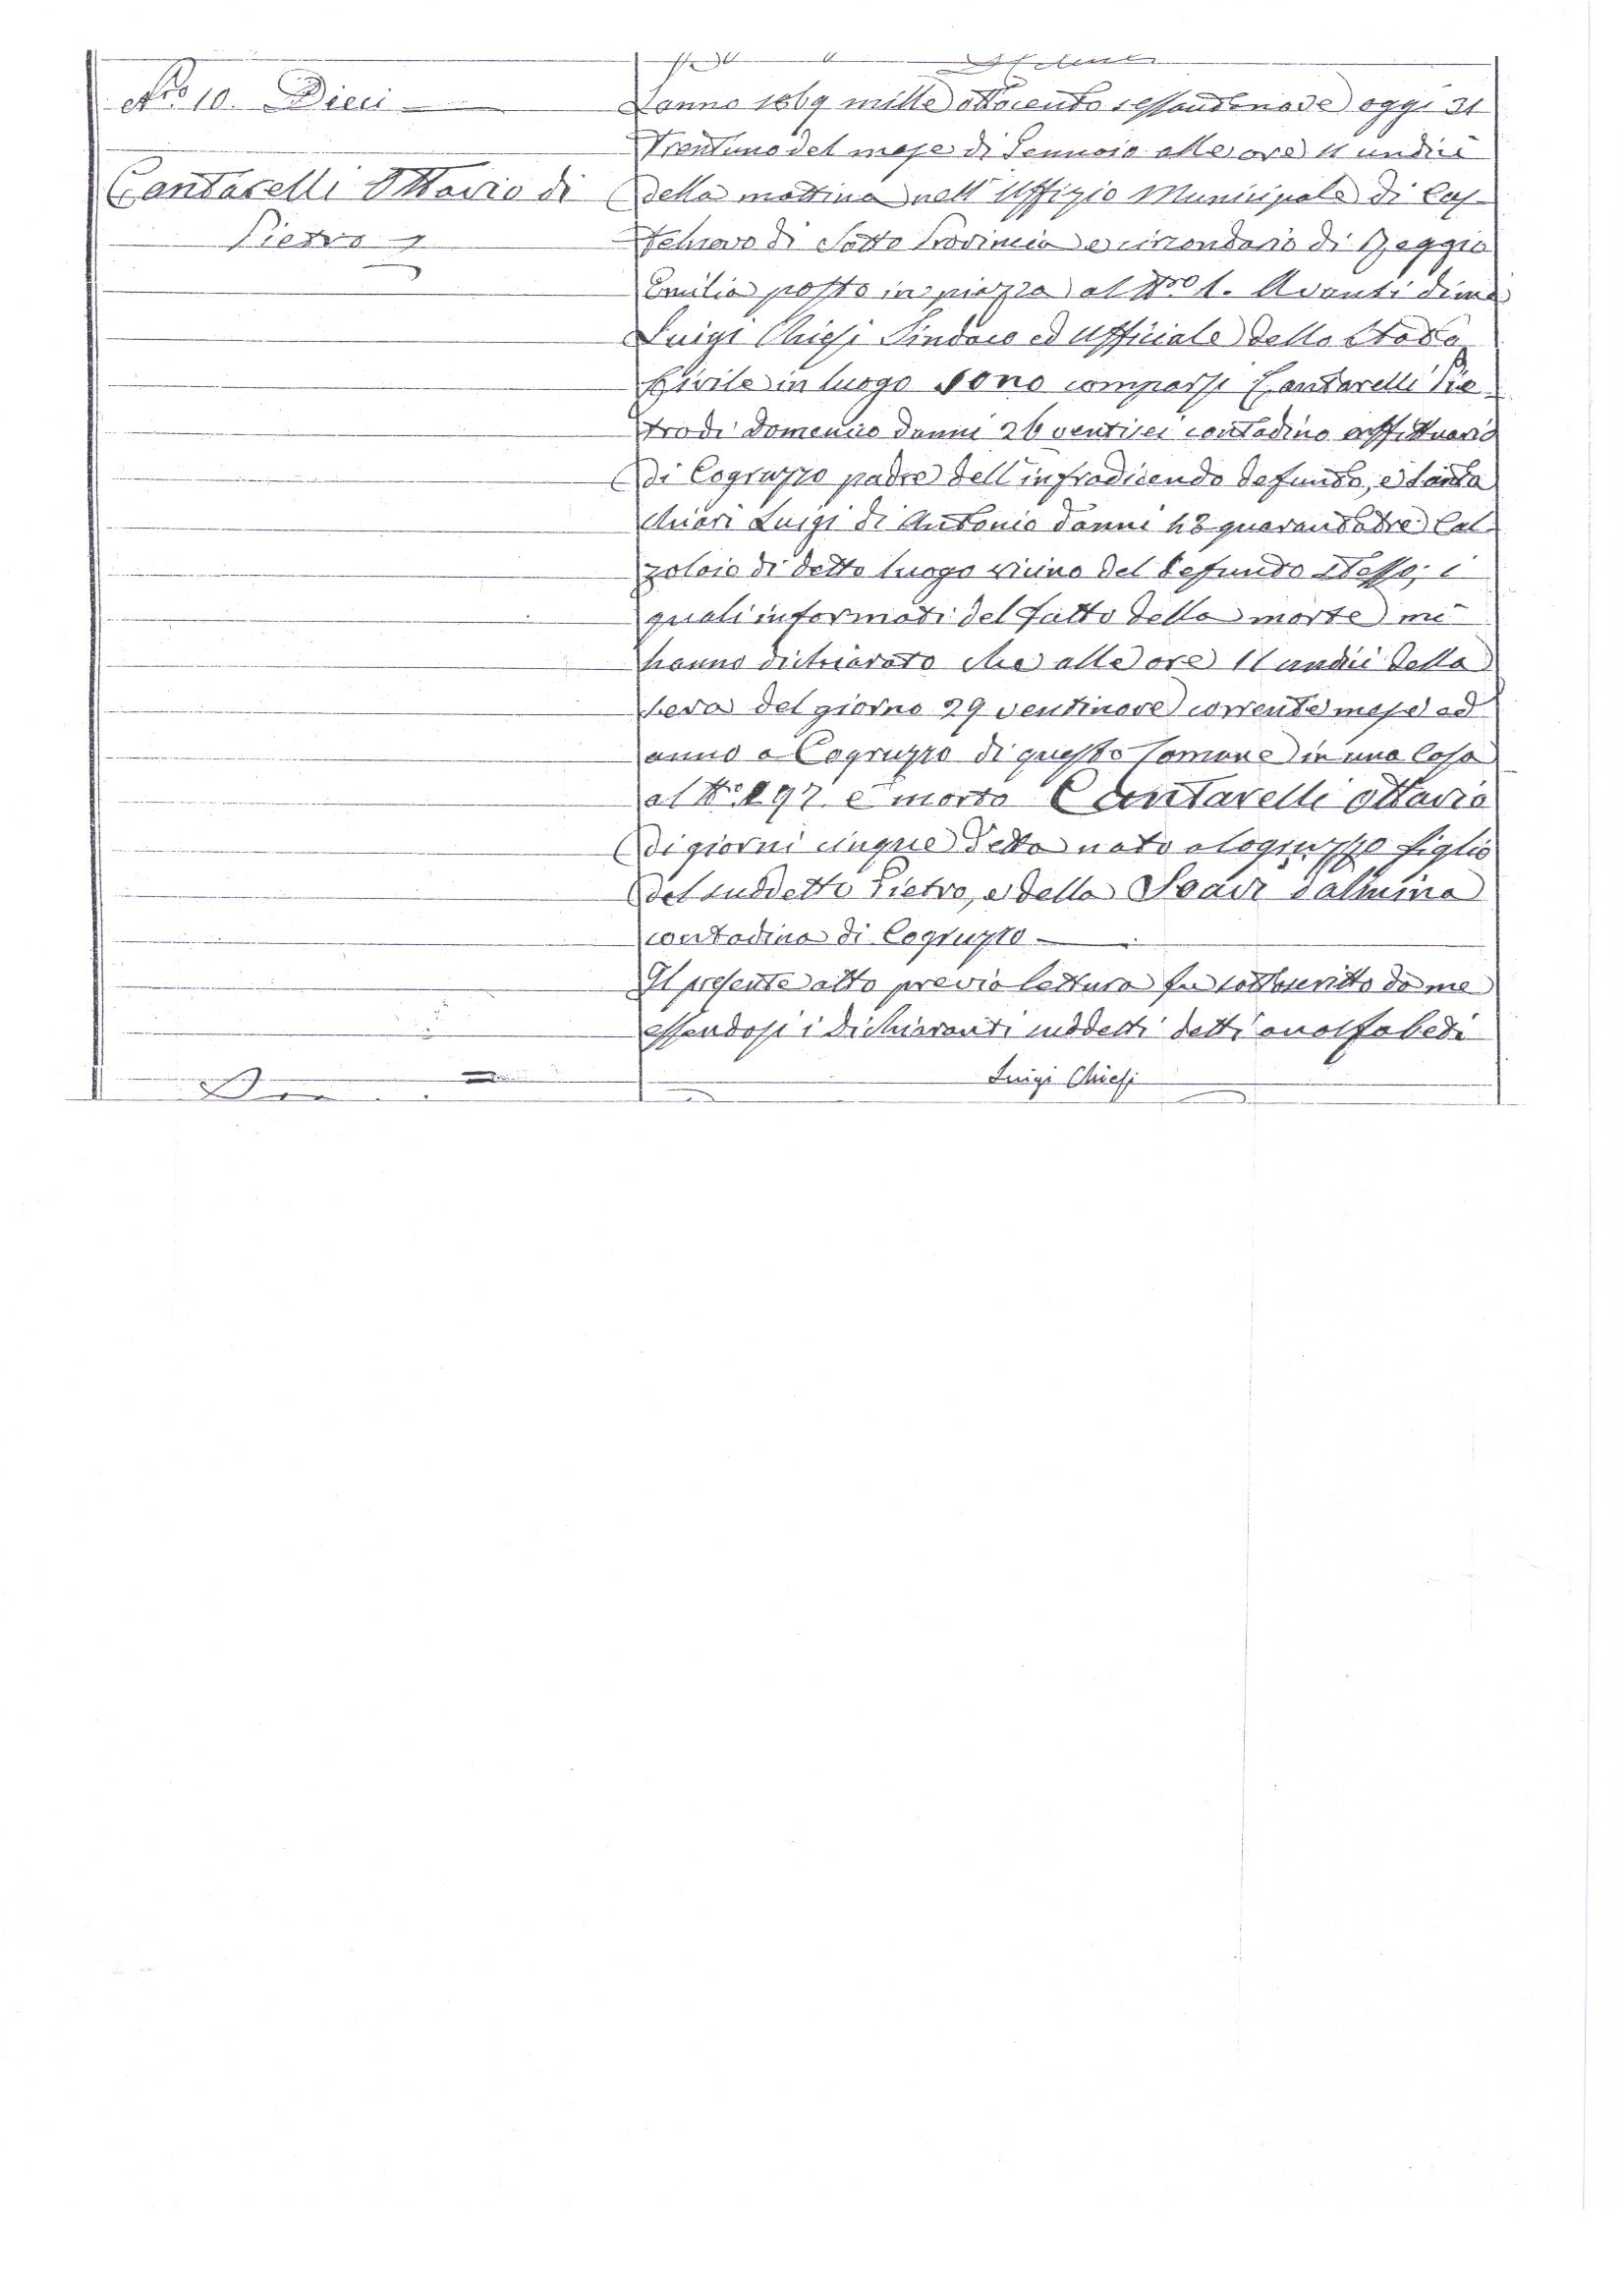 Nro 10. Dieci
Cantarelli Ottavio di
Pietro
L'anno 1869 mille ottocento sessantanove oggi 31
trentuno del mese di Gennaio alle ore 11 undici
della mattina nell'Uffizio Municipale di Cas-
telnovo di Sotto Provincia e circondario di Reggio
Emilia posto in piazza al Nro 1. Avanti di me
Luigi Chiesi Sindaco ed Ufficiale dello Stato
Civile in luogo sono comparsi Cantarelli Pie-
tro di Domenico d'anni 26 ventisei contadino affittuario
di Cogruzzo padre dell'infradicendo defunto, e Santa
chiari Luigi di Antonio d'anni 43 quarantatre Cal-
zolaio di detto luogo vicino del defunto stesso; i
quali informati del fatto della morte mi
hanno dichiarato che alle ore 11 undici della
sera del giorno 29 ventinove corrente mese ed
anno a Cogruzzo di questo Comune in una Casa
al No 197 è morto Cantarelli Ottavio
di giorni cinque detto nato a Cogruzzo figlio
del suddetto Pietro, e della Soavi
contadina di Cogruzzo
Il presente atto previa lettura fu sottoscritto da me
essendosi i dichiaranti suddetti detti analfabeti
Luigi Chiesi